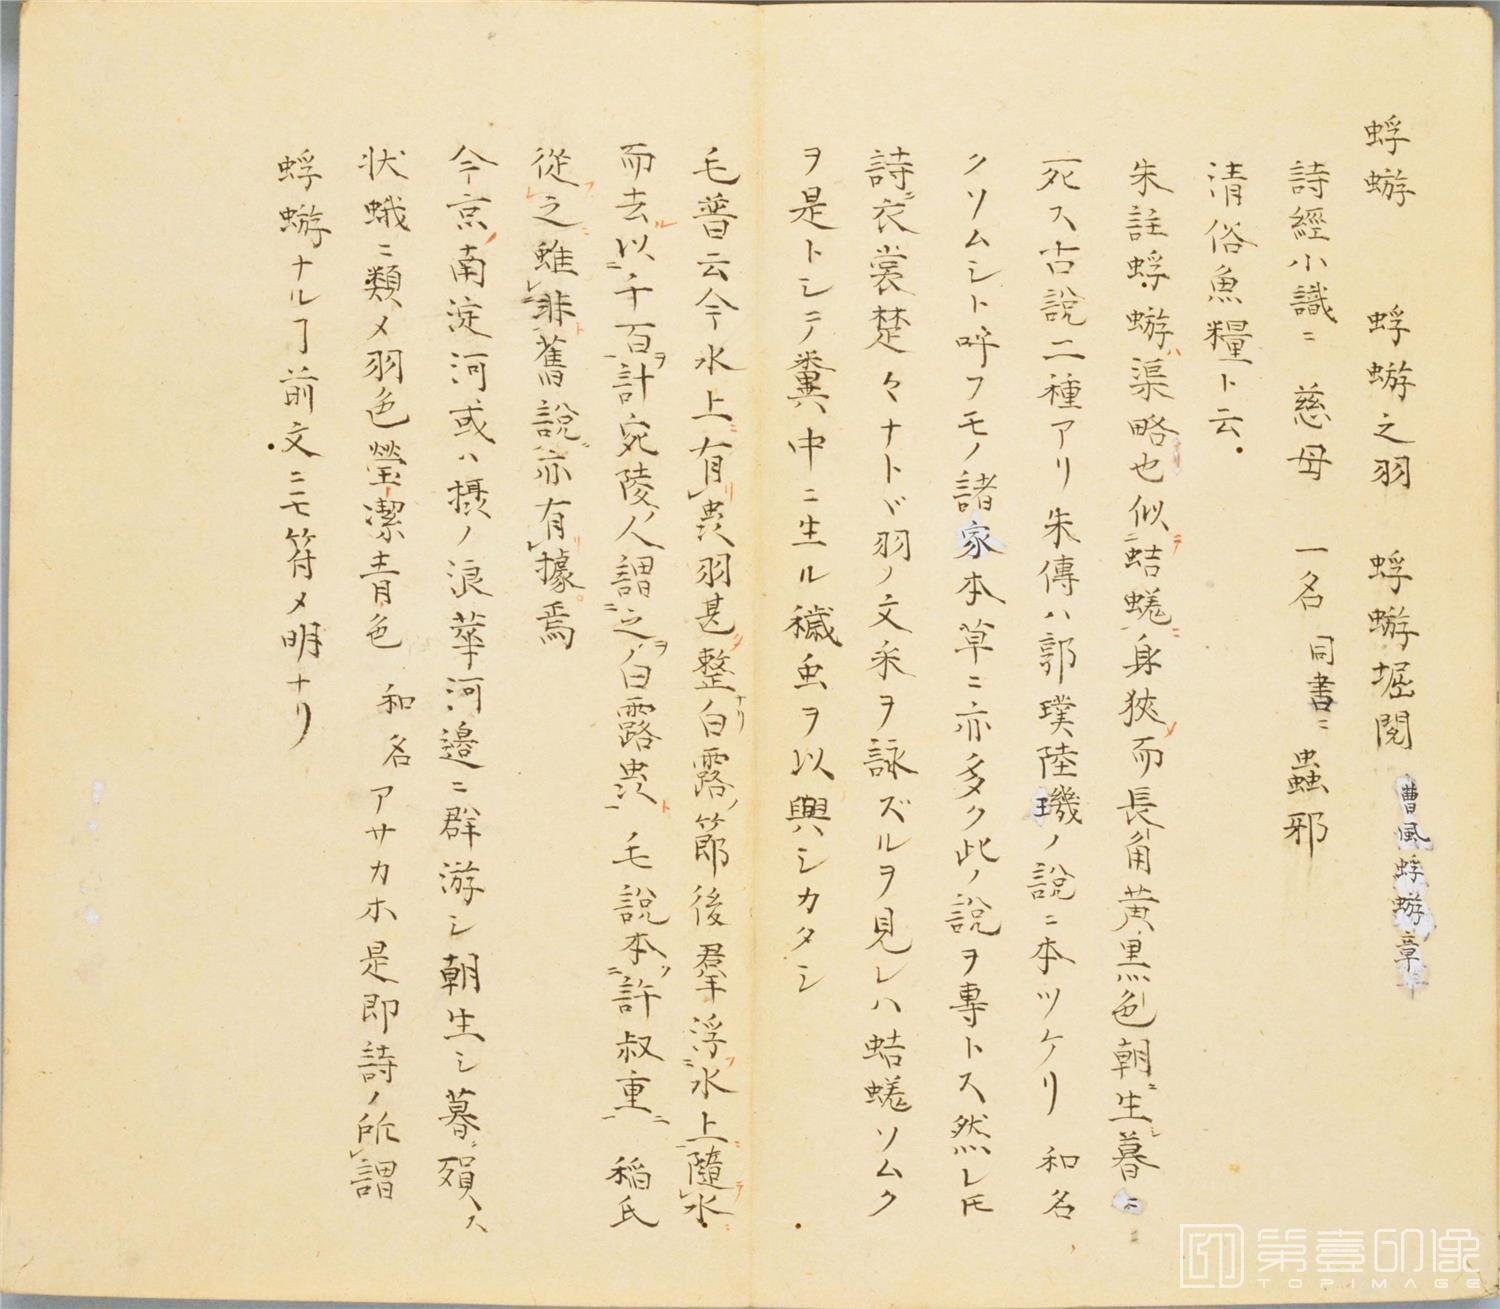 蜉蝣　蜉蝣之羽　蜉蝣堀閱 曹風蜉蝣章
詩經小識ニ　慈母　一名 同書ニ 蟲邪
清俗魚糧ト云.
朱註蜉蝣ハ渠略也似ニテ蛣蜣ニ身狹メ而長角黄黒色朝ニ生シ暮ニ
死ス古説二種アリ朱傳ハ郭璞陸璣ノ説ニ本ツケリ 和名
クソムシト呼フモノ諸家本草ニ亦多ク此ノ説ヲ專トス然レ𪜈
詩ニ衣裳楚々ナトヾ羽ノ文采ヲ詠ズルヲ見レハ蛣蜣ソムク
ヲ是トシテ糞中ニ生ル穢虫ヲ以興シカタシ
毛晋云今水上ニ有リレ䖝羽甚タ整ナリ白露ノ節後羣浮フニ水上ニ一隨テレ水ニ
而去ル以ニ千百ヲ一計宛陵ノ人謂ニ之ヲ白露䖝ト一 毛説本ツクニ許叔重ニ一 稲氏
從フレ之ニ雖レ非トニ舊説ニ亦有リレ據焉
今京南淀河或ハ摂ノ浪華河邉ニ群游シ朝生シ暮ニ殞ス
状蛾ニ類メ羽色瑩潔青色 和名アサカホ是即詩ノ所レ謂
蜉蝣ナルヿ前文ニモ符メ明ナリ
第壹印像
TOPIMAGE